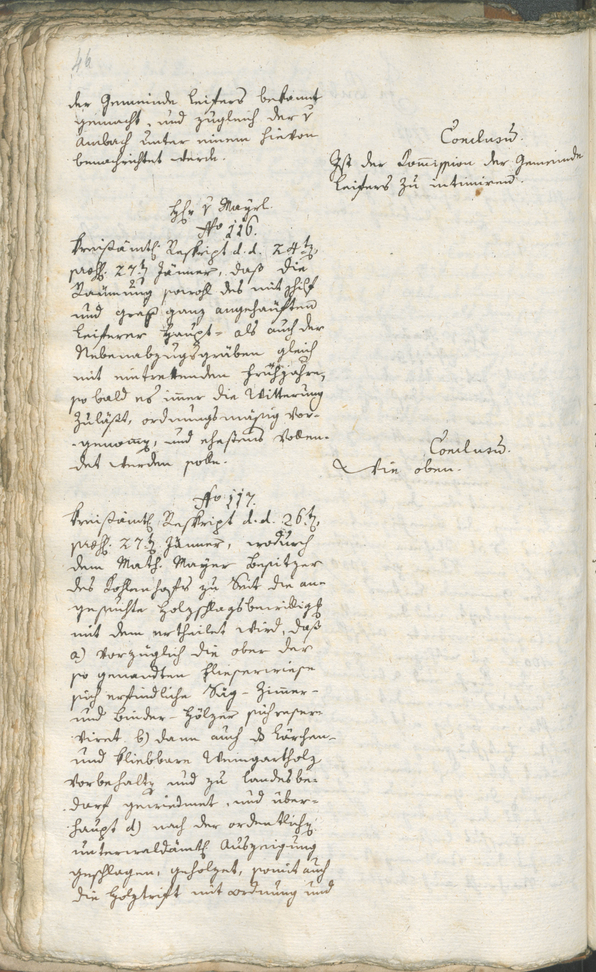 46
der Gemeinde Leifers bekannt
gemacht, und zugleich der v
Ambach unter einem hievon
benachrichtet werde.
Conclusum.
Ist der Commission der Gemeinde
Leifers zu intimiren.
Hr. v Mayrl.
No 116.
Kreisämtl. Reskript d. d. 24t,
praes. 27t Jänner, daß die
Räumung sowohl des mit Schilf
und graß ganz angehäuften
Leiferer Haupt- als auch der
Nebenabzugsgräben gleich
mit eintrettendem Frühjahre,
so bald es immer die Witterung
zuläßt, ordnungsmäßig vor-
genommen, und ehestens vollen-
det werden solle.
Conclusum.
Wie oben.
No 117.
Kreisämtl. Reskript d. d. 26t,
praes. 27t Jänner, wodurch
dem Math. Mayer Besitzer
des Kohlenhofs zu Seit die an-
gesuchte Holzschlagsbewilligg
mit dem ertheilet wird, daß
a) vorzüglich die ober der
so genandten
sich erfindliche Säg- Zimer-
und Binder- Hölzer sich reser-
viret b) dann auch das Lärchen-
und kliebbare Weingartholz
vorbehalten und zu Landesbe-
darf gewiedmet, und über-
haupt d) nach der ordentlichen
unterwaldämtl Auszeigung
geschlagen, geholzet, somit auch
die Holztrift mit ordnung und